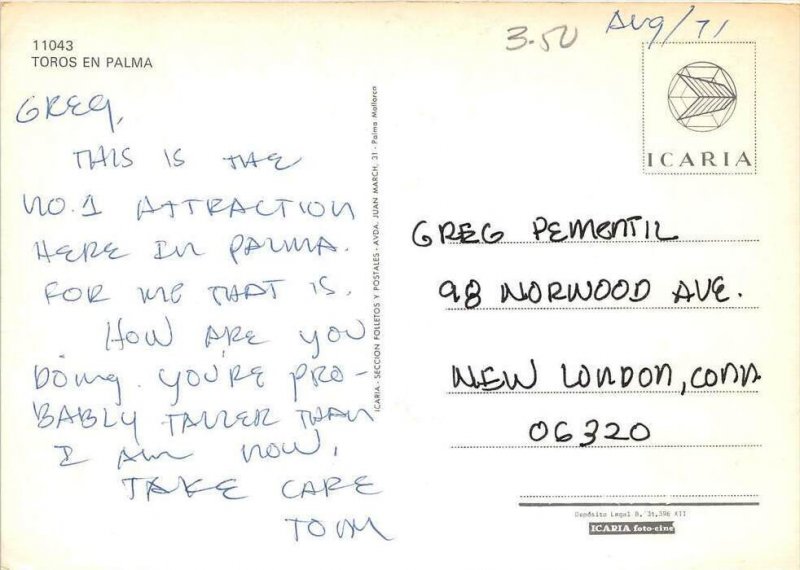 11043
TOROS EN PALMA
3.50
Aug/71
GREG,
THIS IS THE
NO.1 ATTRACTION
HERE IN PALMA.
FOR ME THAT IS.
HOW ARE YOU
DOING. YOU'RE PRO-
BABLY TALLER THAN
I AM NOW.
TAKE CARE
TOM
ICARIA - SECCION FOLLETOS Y POSTALES - AVDA. JUAN MARCH, 31 - Palma Mallorca
ICARIA
GREG PEMENTIL
98 NORWOOD AVE.
NEW LONDON, CONN
06320
Depósito Legal B. 31.596 XII
ICARIA foto-cine